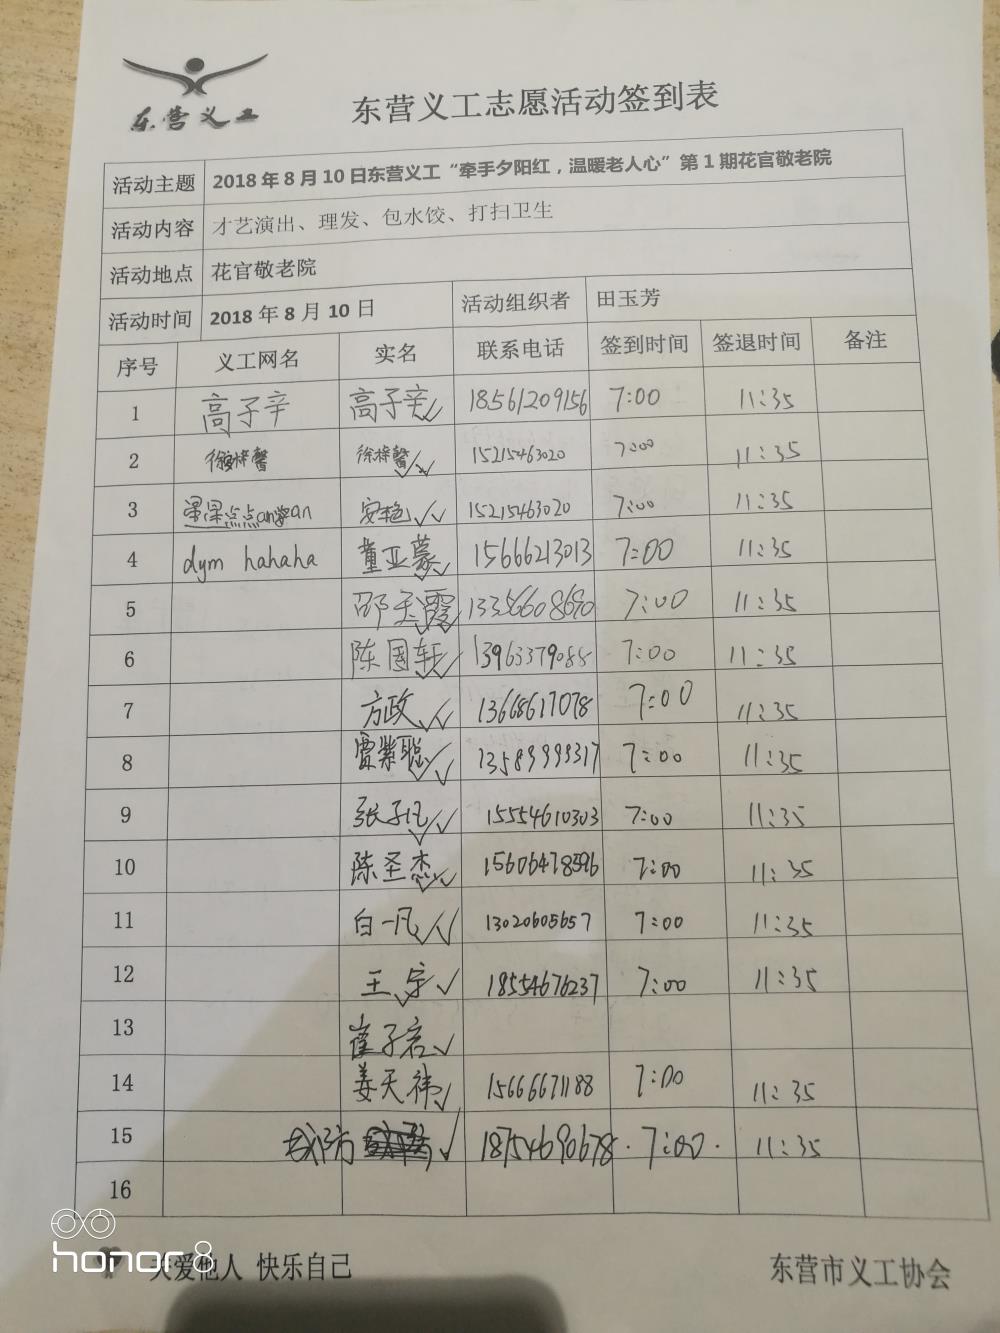 东营义工
东营义工志愿活动签到表
活动主题 2018年8月10日东营义工“牵手夕阳红，温暖老人心”第1期花官敬老院
活动内容 才艺演出、理发、包水饺、打扫卫生
活动地点 花官敬老院
活动时间 2018年8月10日 活动组织者 田玉芳
序号 义工网名 实名 联系电话 签到时间 签退时间 备注
1 高子辛 高子辛 18561209156 7:00 11:35
2 徐梓馨 徐梓馨 15215463020 7:00 11:35
3 安艳 15215463020 7:00 11:35
4 dym hahaha 董亚蒙 15666213013 7:00 11:35
5 邵玉霞 7:00 11:35
6 陈国轩 13963379088 7:00 11:35
7 方政 13668617078 7:00 11:35
8 贾紫聪 13589999317 7:00 11:35
9 张子凡 15554610303 7:00 11:35
10 陈圣杰 7:00 11:35
11 白一凡 13020605657 7:00 11:35
12 王宇 18554676237 7:00 11:35
13 崔子君
14 姜天祎 15666671188 7:00 11:35
15 18754690678 7:00 11:35
16
关爱他人 快乐自己 东营市义工协会
honor 8